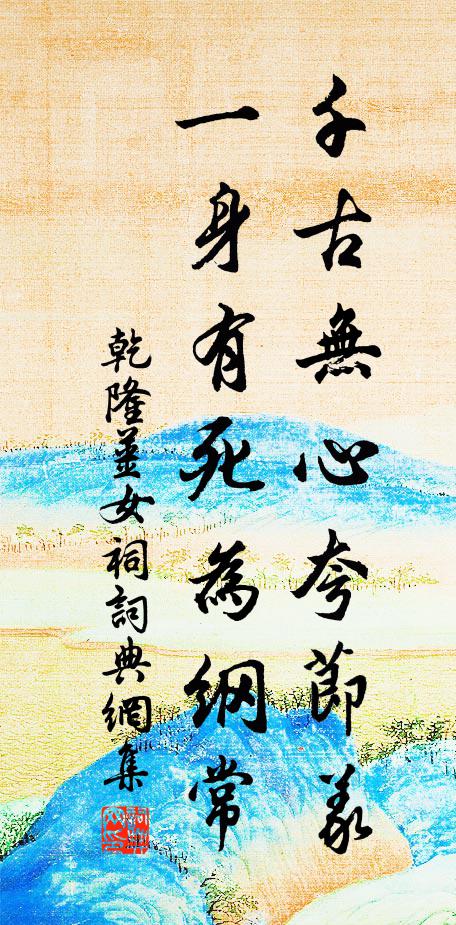 千古無心夸節義
一身有死為綱常
乾隆姜女祠詞典網集